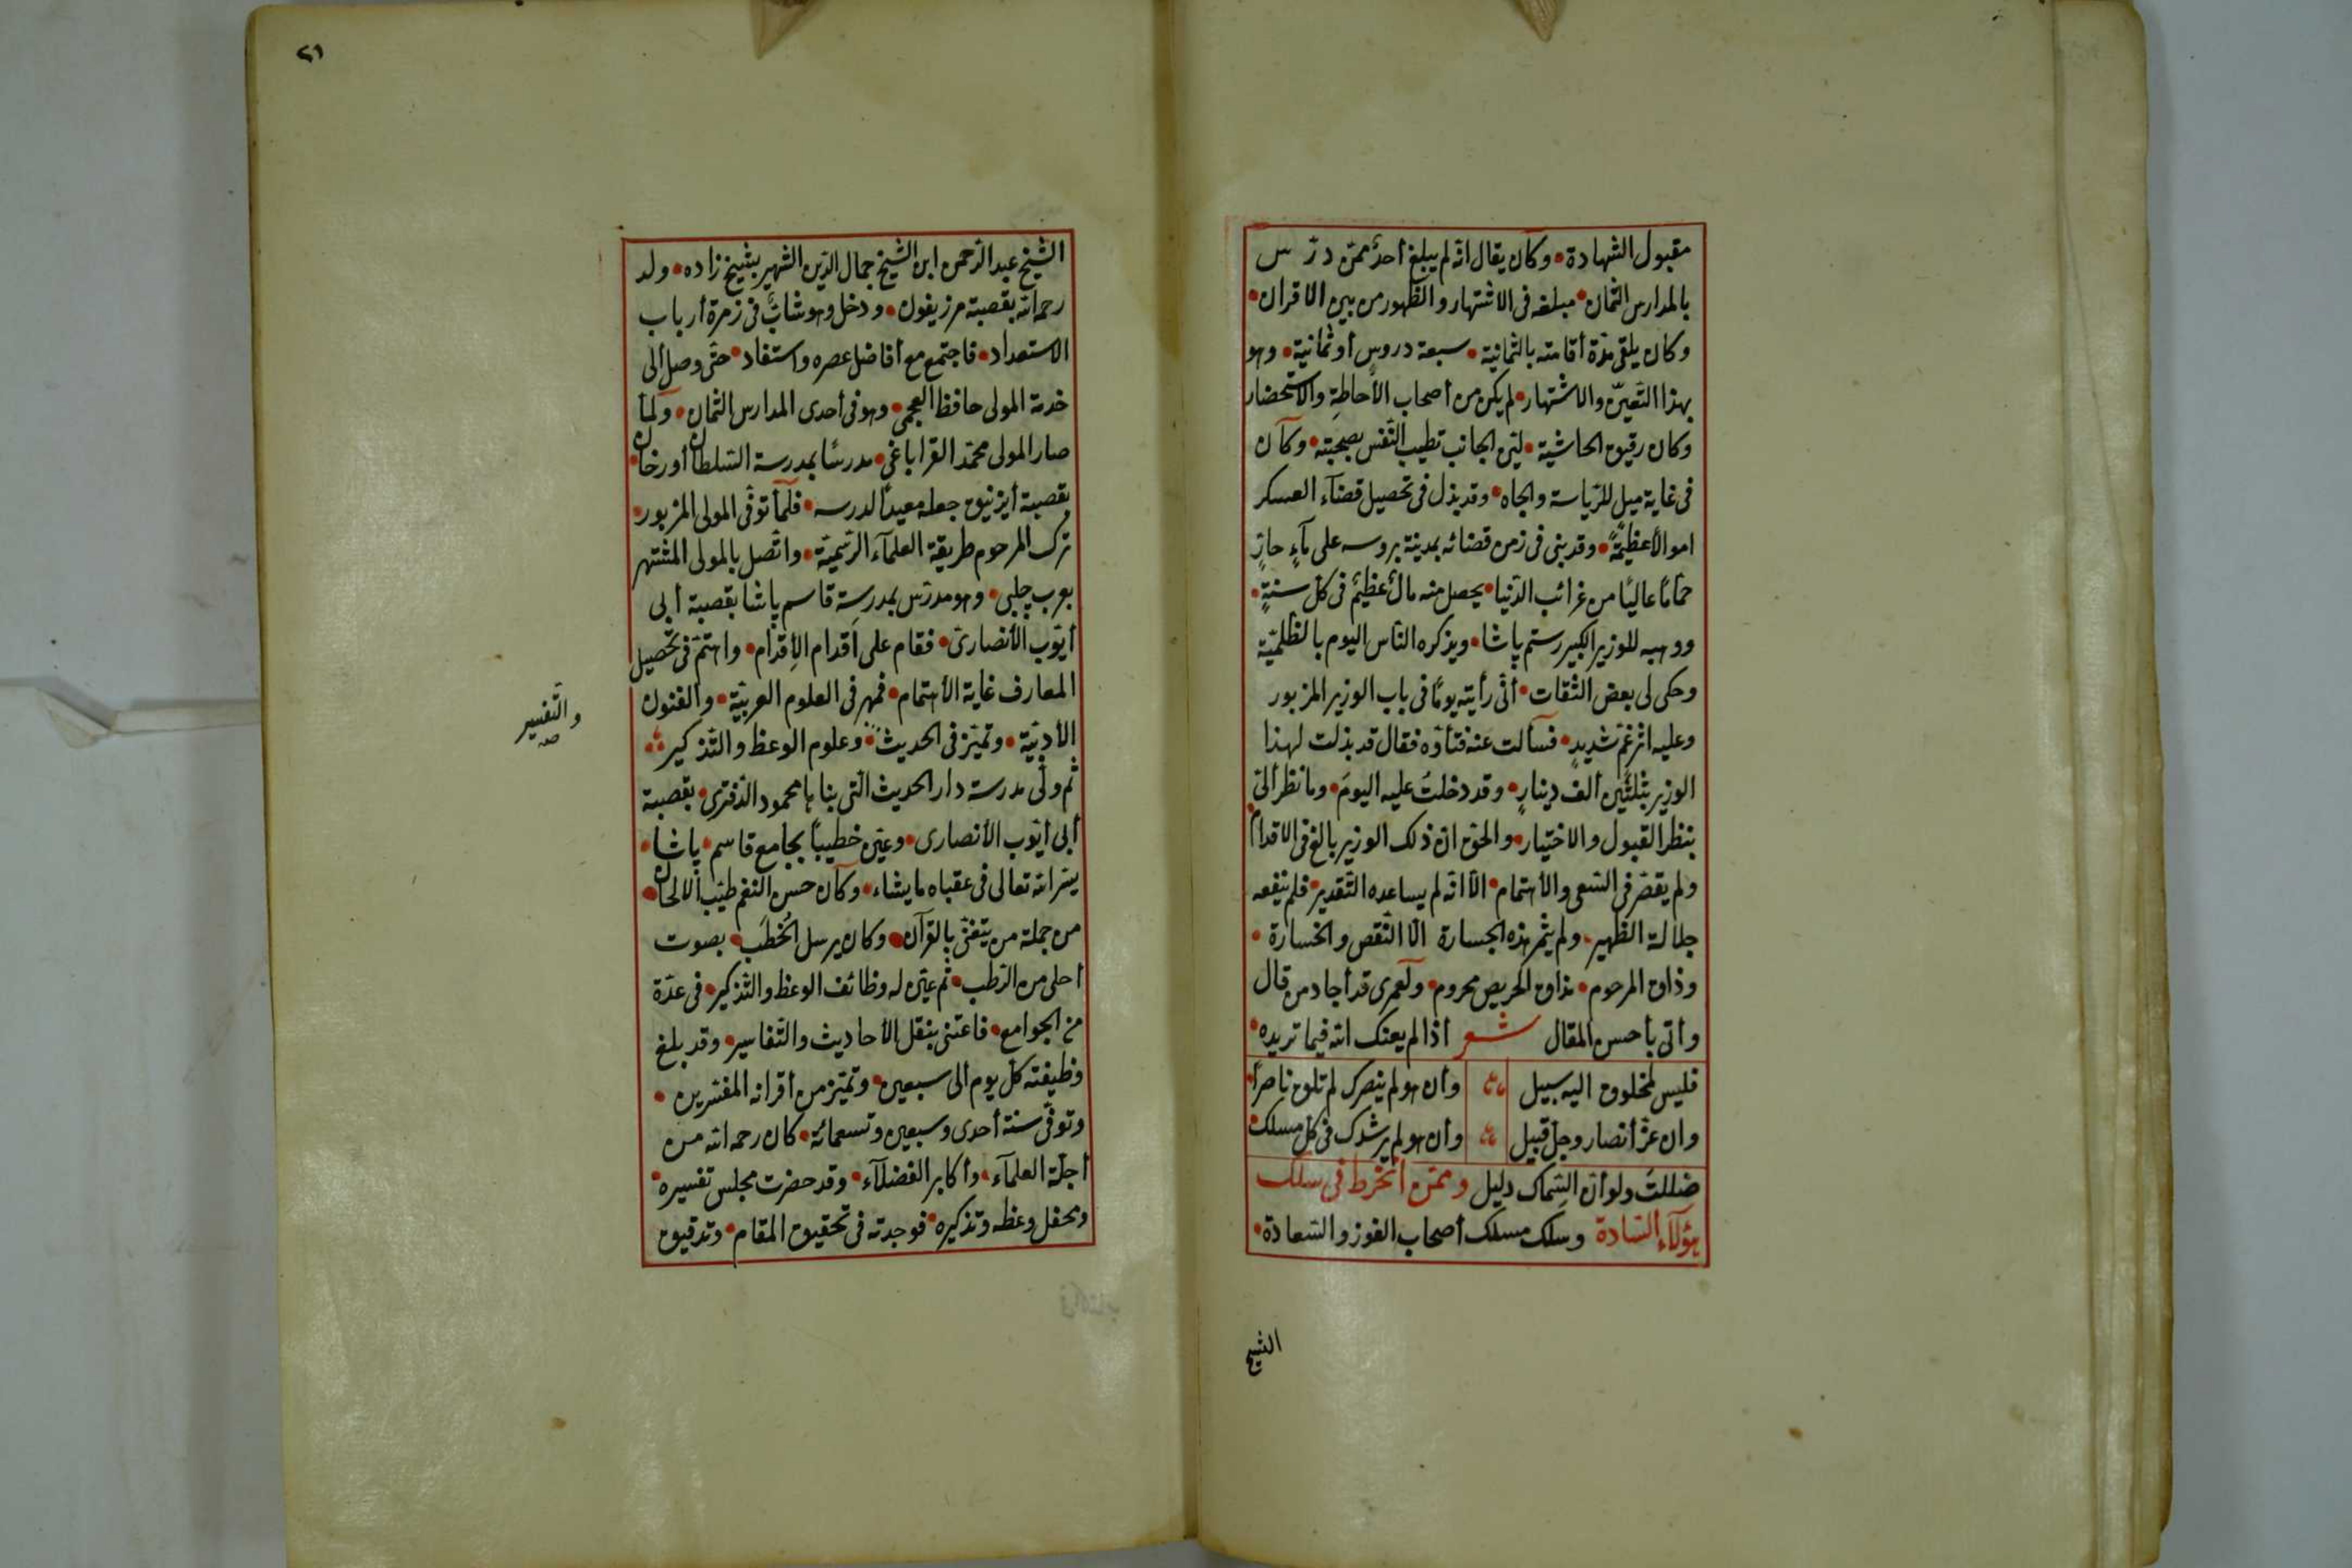 مقبول الشهادة • وكان يقال انّه لم يبلغ أحدٌ ممّن درّس
بالمدارس الثمان • مبلغه فى الاشتهار والظهور من بين الاقران •
وكان يلقى مدّة أقامته بالثمانية • سبعة دروسٍ أو ثمانية • وهو
بهذا التعيّن والاشتهار • لم يكن من أصحاب الأحاطةِ والاستحضار
وكان رقيق الحاشية • ليّن الجانب تطيب النّفس بصحبته • وكان
فى غاية ميل للرّياسة والجاه • وقد بذل فى تحصيل قضآء العسكر
اموالاً عظيمًة • وقد بنى فى زمن قضائه بمدينة بروسه على مآءٍ حارٍ
حمّامًا عاليًا من غرائب الدّنيا • يحصل منه مالٌ عظيمٌ فى كلّ سنةٍ •
ووهبه للوزير الكبير رستم پاشا • ويذكره النّاس اليوم بالظلميّة
وحكى لى بعض الثّقات • أنّى رأيته يومًا فى باب الوزير المزبور
وعليه اثر غمّ شديدٍ • فسألت عنه فتأوّه فقال قد بذلت لهذا
الوزير بثلثين ألف دينارٍ • وقد دخلتُ عليه اليومَ • وما نظر ألىّ
بنظر القبول والاختيار • والحقّ انّ ذلك الوزير بالغ فى الاقدام •
ولم يقصّر فى السّعى والأهتمام • الّا انّه لم يساعده التّقدير • فلم ينفعه
جلالة الظهير • ولم يثمر هذه الجسارة الّا النّقص والخسارة •
وذاق المرحوم • مذاق الحريص محروم • ولعمرى قد أجاد من قال
وأتى بأحسن المقال شعر أذا لم يعنك الله فيما تريده •
فليس لمخلوق اليه سبيل وأن هو لم ينصرك لم تلق ناصرًا •
وان عزّ أنصار وجلّ قبيل وأن هو لم يرشدك فى كلّ مسلك •
ضللتَ ولو أنّ السِّماك دليل وممّن أنخرط فى سلك
هؤلآء السّادة وسلك مسلك أصحاب الفوز والسّعادة •
الشيخ
٢١
الشّيخ عبد الرّحمن ابن الشّيخ جمال الدّين الشّهير بشيخ زاده • ولد
رحمه الله بقصبة مرزيفون • ودخل وهو شابٌّ فى زمرة أرباب
الاستعداد • فاجتمع مع أفاضل عصره واستفاد • حتّى وصل ألى
خدمة المولى حافظ العجمى • وهو فى أحدى المدارس الثمان • ولمّا
صار المولى محمّد القراباغى • مدرّسًا بمدرسة السّلطان أورخان •
بقصبة أيزنيق جعله معيدًا لدرسه • فلمّا توفّى المولى المزبور •
ترك المرحوم طريقة العلمآء الرّسميّة • واتّصل بالمولى المشتهر
بعرب چلبى • وهو مدرّس بمدرسةِ قاسم پاشا بقصبة أبى
أيّوب الأنصارىّ • فقام على أقدام الأِقدام • واهتمّ فى تحصيل
المعارف غاية الأهتمام • فمهر فى العلوم العربيّة • والفنون
الأدبيّة • وتميّز فى الحديث • وعلوم الوعظ والتّذكير
والتّفسير صح
ثم ولّى مدرسة دار الحديث الّتى بناها محمود الدّفترى • بقصبة
أبى أيّوب الأنصارى • وعيّن خطيبًا بجامع قاسم • پاشا •
يسّر الله تعالى فى عقباه ما يشاء • وكان حسن النّغم طيّب الالحان •
من جملة من يتغنّى بالقرآن • وكان يرسل الخُطَب • بصوت
أحلى من الرّطب • ثم عيّن له وظائف الوعظ والتّذكير • فى عدّة
من الجوامع • فاعتنى بنقل الأحاديث والتّفاسير • وقد بلغ
وظيفته كلّ يوم ألى سبعين • وتميّز من أقرانه المفسّرين •
وتوفّى سنة أحدى وسبعين وتسعمائة • كان رحمه الله من
أجلّة العلمآء • وأكابر الفضلآء • وقد حضرت مجلس تفسيره •
ومحفل وعظه وتذكيره • فوجدته فى تحقيق المقام • وتدقيق